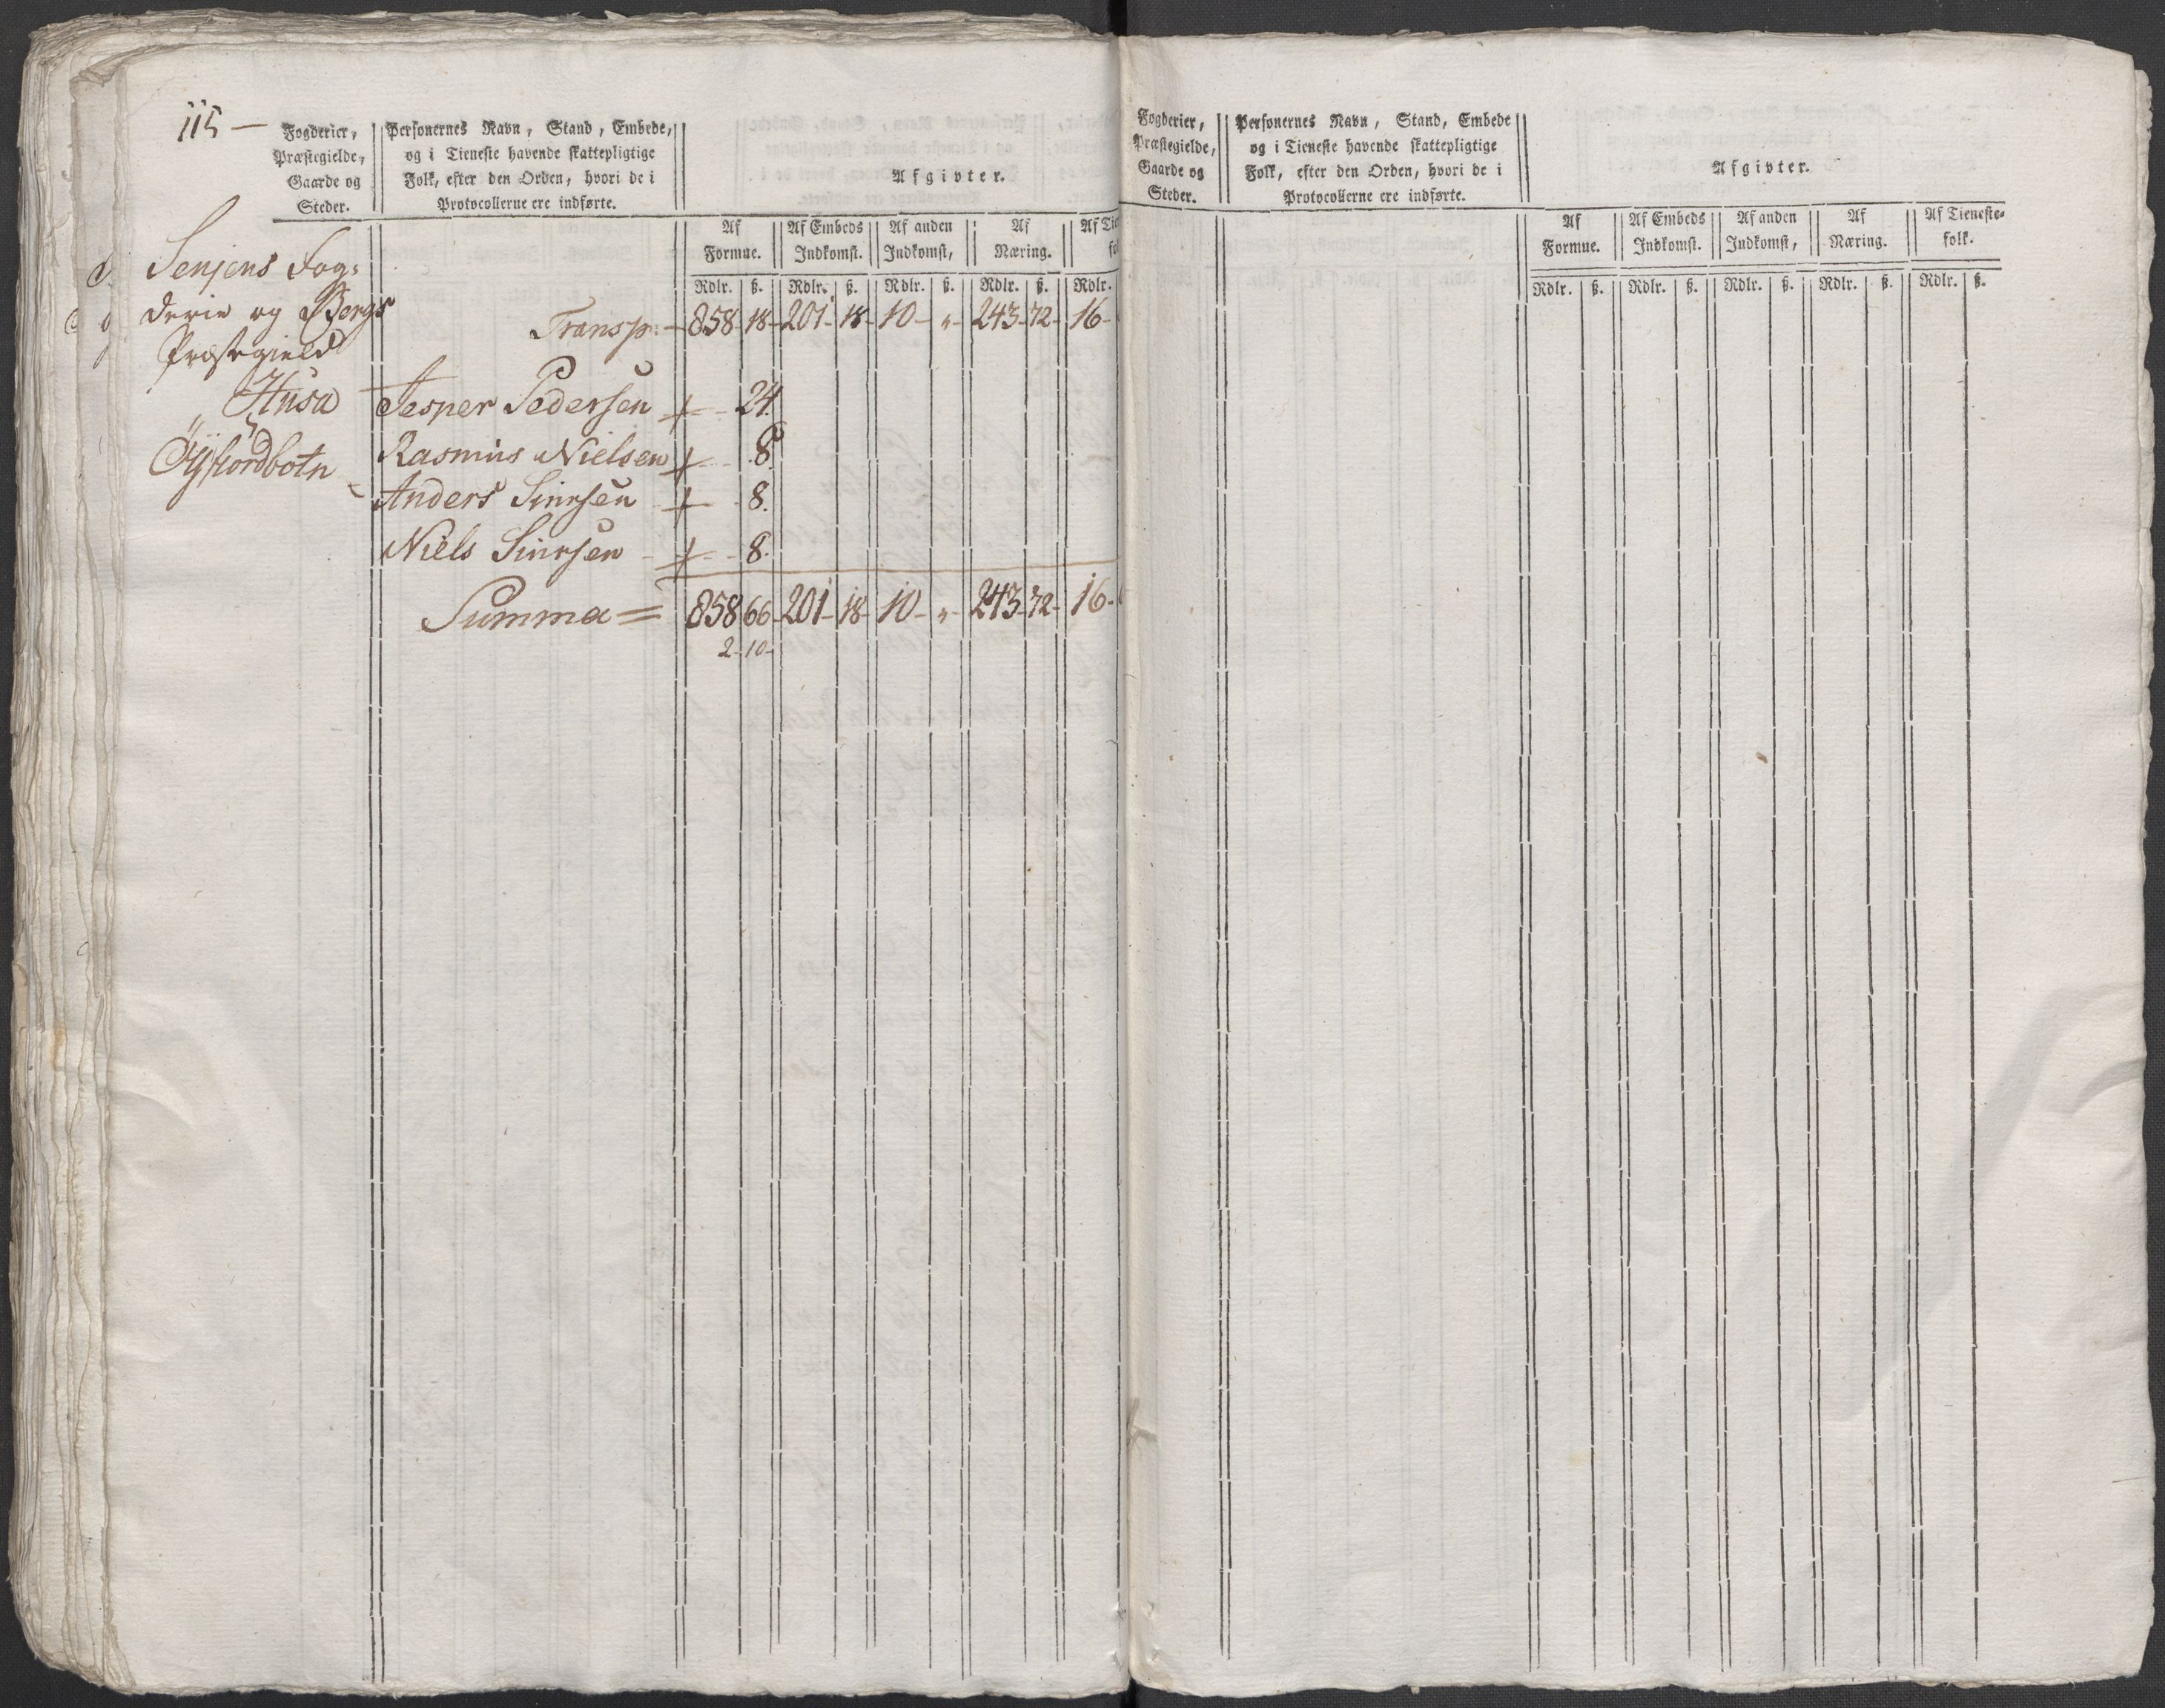 115 —
Fogderier, Personernes Navn, Stand, Embede,
Præstegielde, og i Tieneste havende skattepligtige
Gaarde og Folk, efter den Orden, hvori de i Afgivter.
Steder. Protocollerne ere indførte.
Af Af Embeds Af anden Af Af Tie
Formue. Indkomst. Indkomst, Næring. fo
Rdlr. ß. Rdlr. ß. Rdlr. ß. Rdlr. ß. Rdlr.
Senjens Fog=
derie og Bergs Transp: 858 - 18 - 201 - 18 - 10 - " - 243 - 72 - 16 -
Præstegield
Husa Jesper Pedersen 24.
Øyfiordbotn Rasmus Nielsen 8.
Anders Siursen 8.
Niels Siursen 8.
Summa = 858 66 - 201 - 18 - 10 - " - 243 - 72 - 16 -
2 - 10 -
Fogderier, Personernes Navn, Stand, Embede
Præstegielde, og i Tieneste havende skattepligtige
Gaarde og Folk, efter den Orden, hvori de i Afgivter.
Steder. Protocollerne ere indførte.
Af Af Embeds Af anden Af Af Tieneste=
Formue. Indkomst. Indkomst, Næring. folk.
Rdlr. ß. Rdlr. ß. Rdlr. ß. Rdlr. ß. Rdlr. ß.